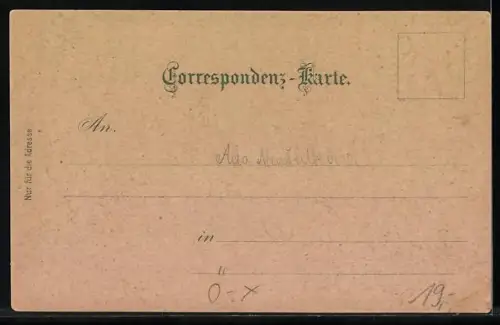 Correspondenz-Karte.
An.
in
Nur für die Adresse
0-x
19.-